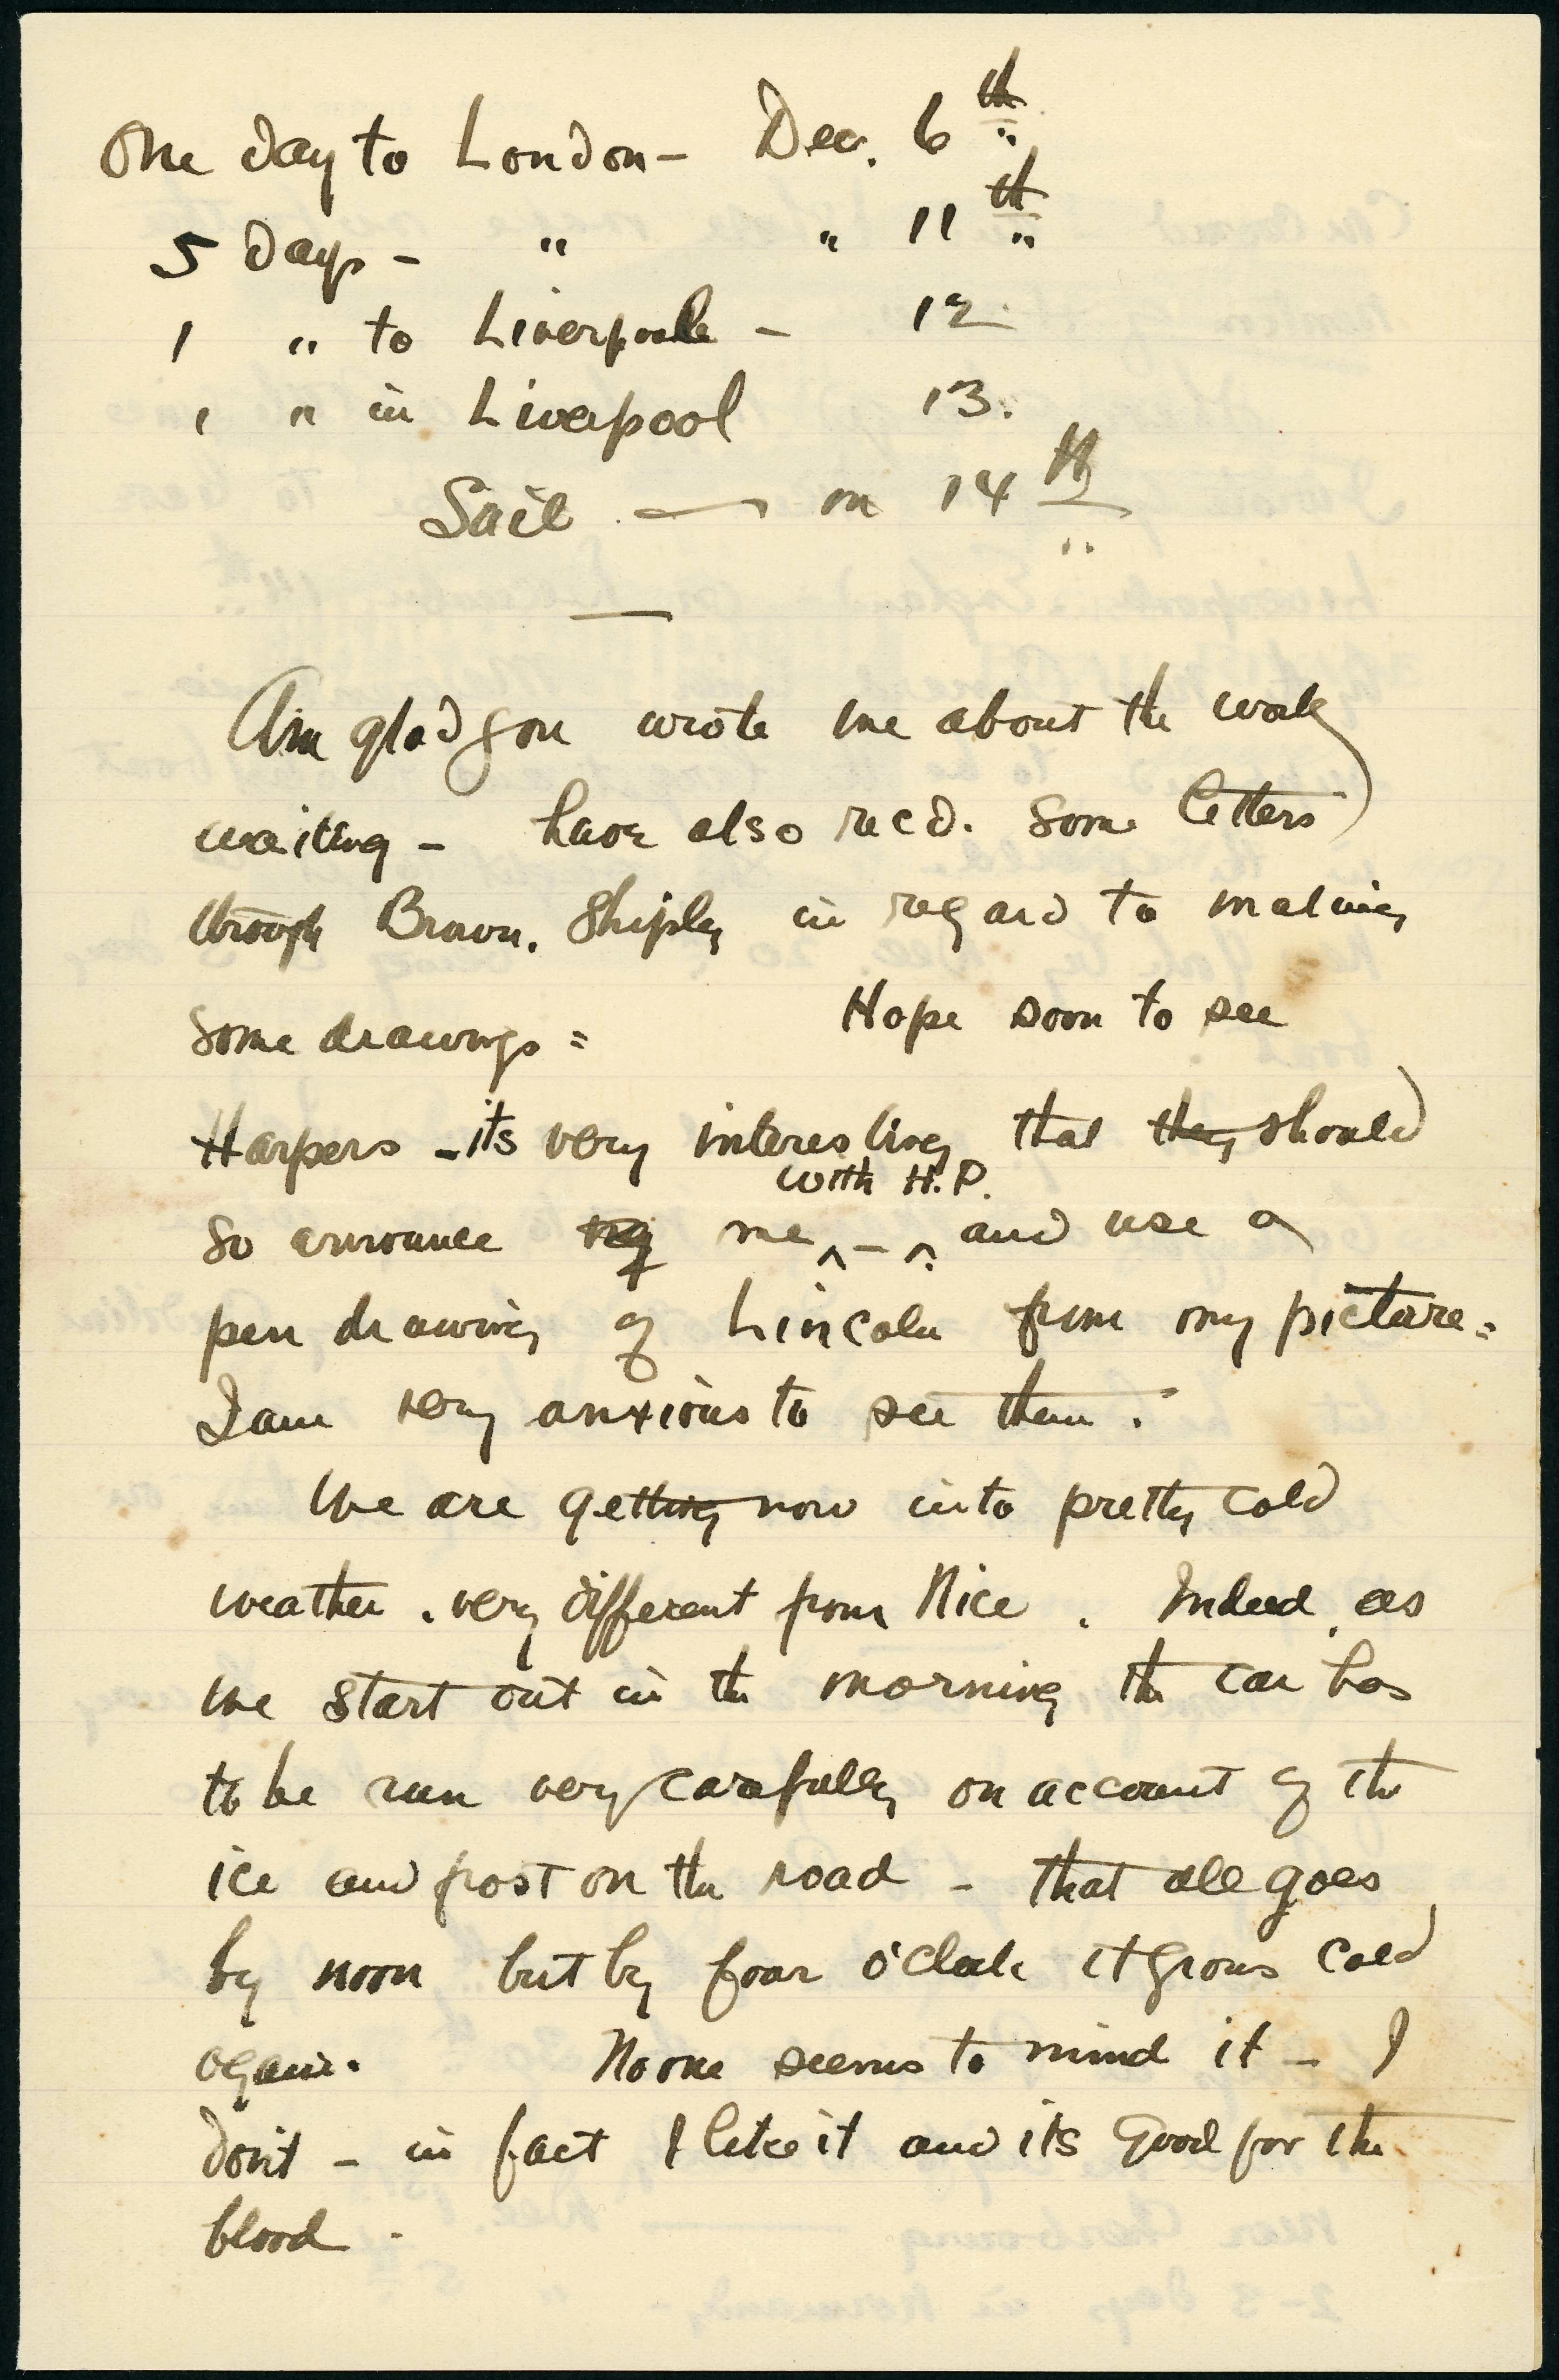 One day to London - Dec. 6th
5 days - " " 11th
1 " to Liverpoole - 12
1 " in Liverpool 13.
Sail — on 14th
Am glad you wrote me about the work
waiting - have also recd. some letters
through Brown. Shipley in regard to making
some drawings = Hope soon to see
Harpers - its very interesting that they should
so announce me with H.P. - and use a
pen drawing of Lincoln from my picture =
I am very anxious to see them.
We are getting now into pretty cold
weather. very different from Nice. Indeed, as
we start out in the morning the car has
to be run very carefully on account of the
ice and frost on the road - that all goes
by noon but by four o'clock it grows cold
again. No one seems to mind it - I
don't - in fact I like it and its good for the
blood -